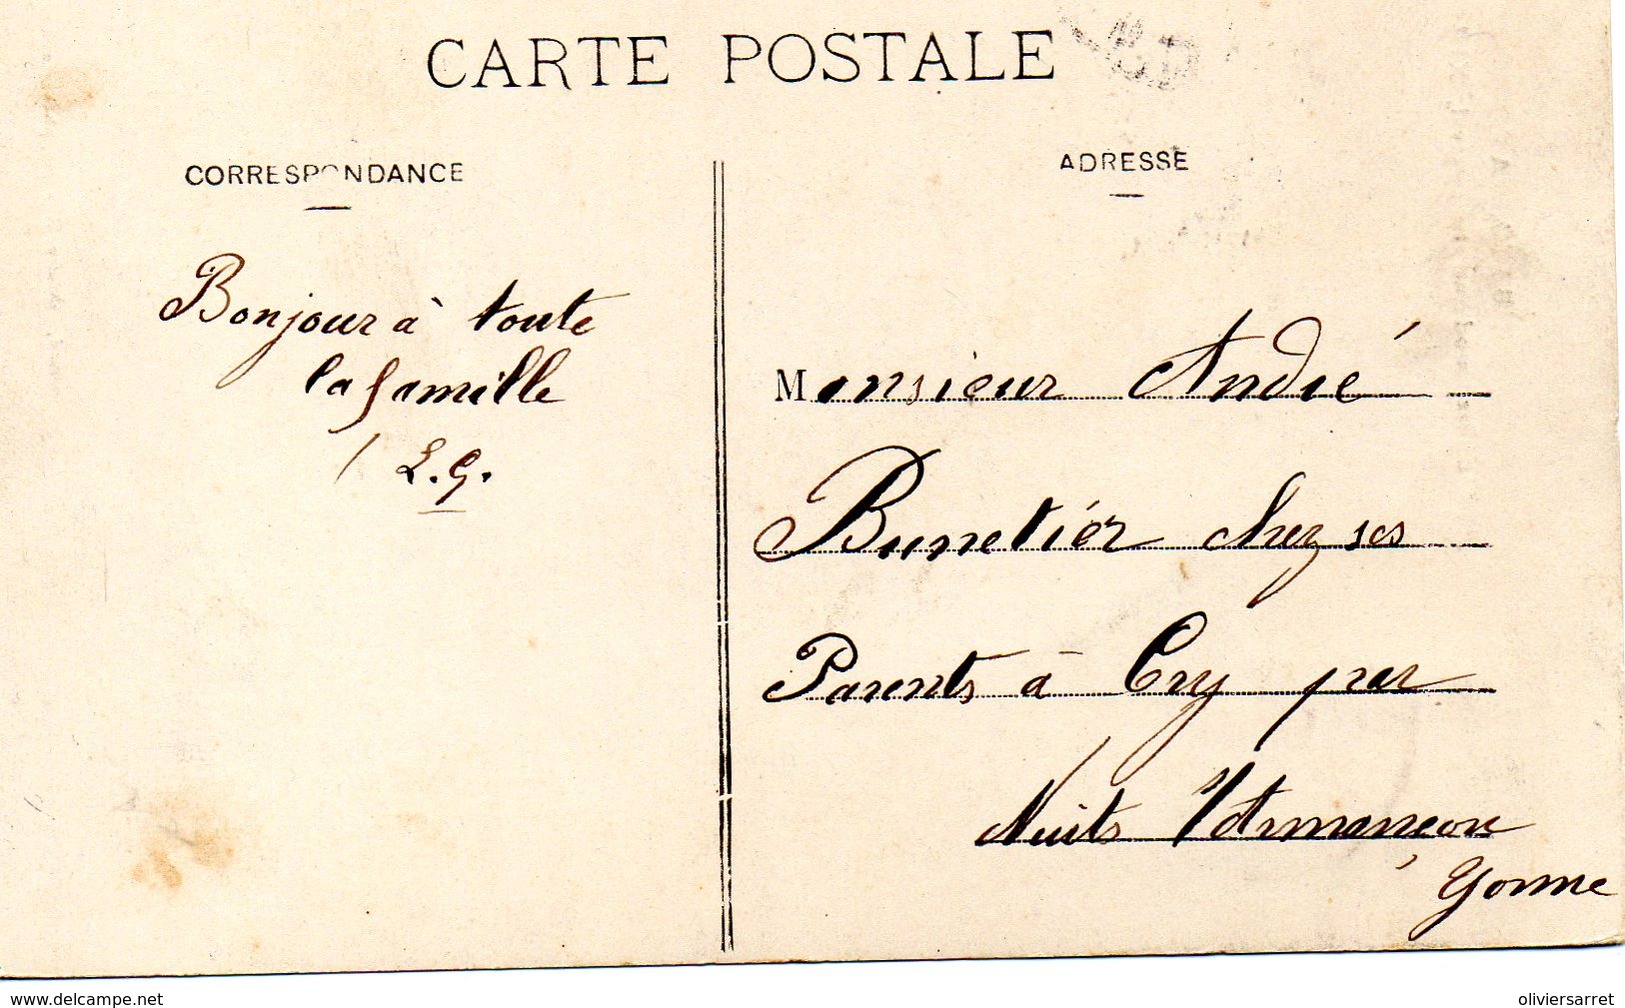 CARTE POSTALE
CORRESPONDANCE
ADRESSE
Bonjour à toute
la famille
L. G.
Monsieur André
Bunetier chez ses
Parents à Cry par
Nuits s/ Armançon
Yonne
www.delcampe.net
oliviersarret